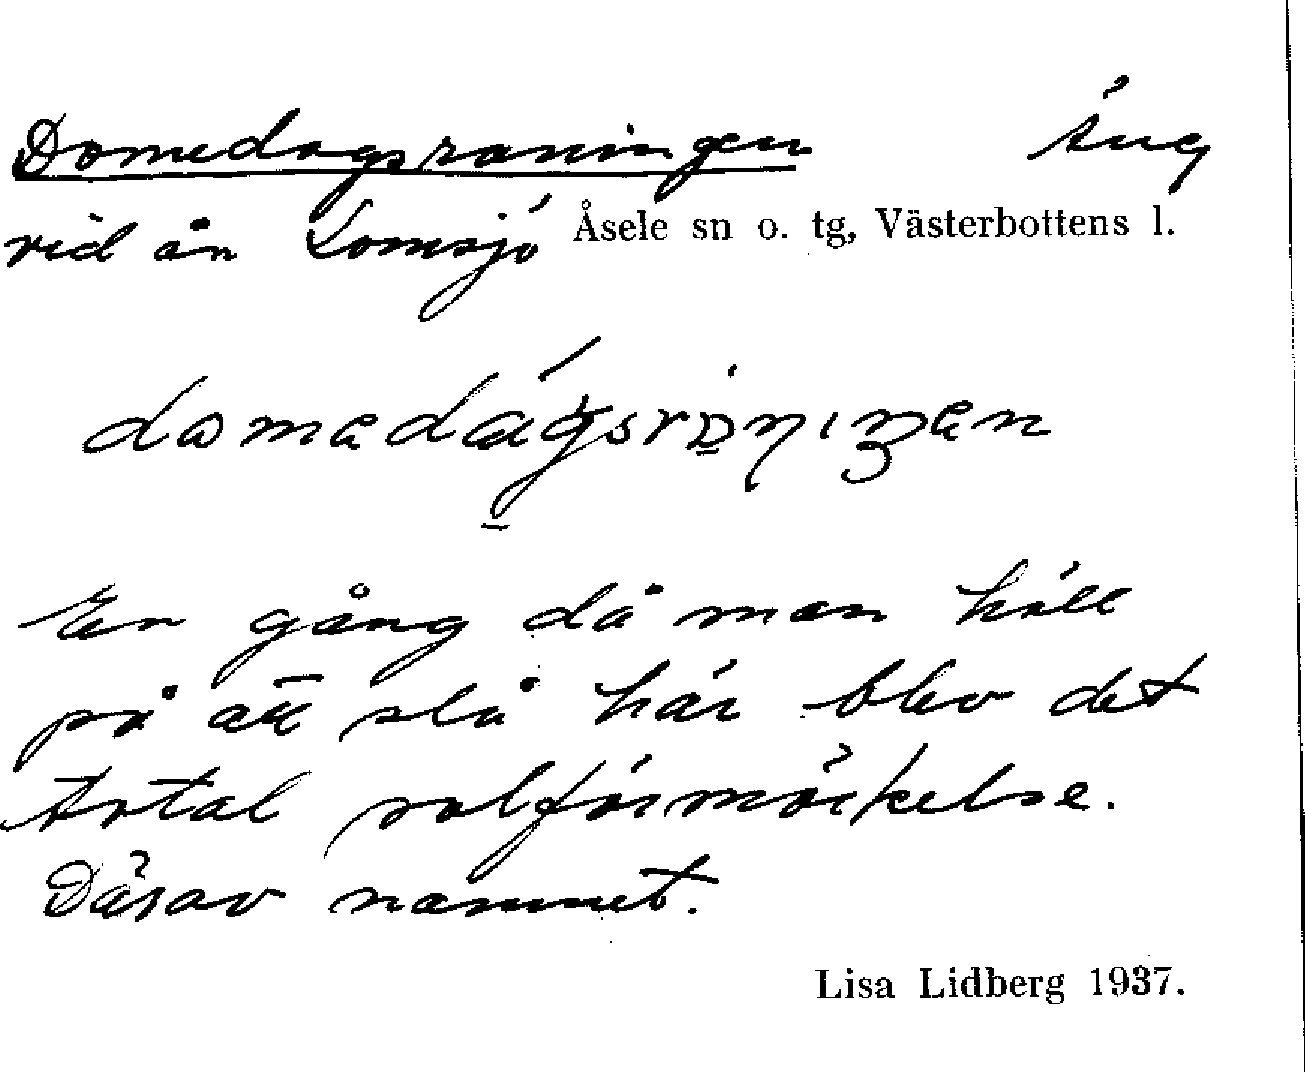 Domedagsraningen äng
vid ån Lomsjö Åsele sn o. tg, Västerbottens l.
En gång då man höll
på att slå här blev det
total solförmörkelse.
Därav namnet.
Lisa Lidberg 1937.